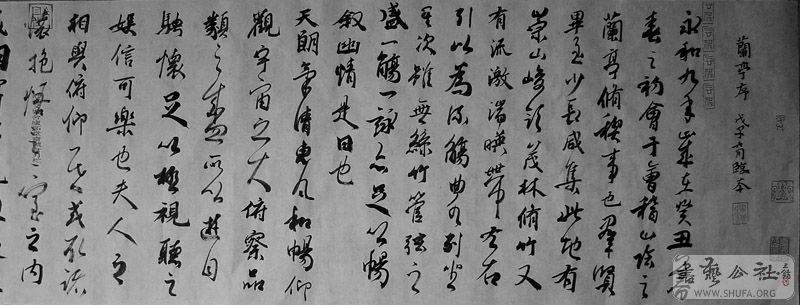 蘭亭序 戊子 臨本
永和九年歲在癸丑暮
春之初會于會稽山陰之
蘭亭脩禊事也羣賢
畢至少長咸集此地有
崇山峻領茂林脩竹又
有流激湍暎帶左右
引以為流觴曲水列坐
其次雖無絲竹管弦之
盛一觴一詠亦足以暢
敘幽情是日也
天朗氣清惠風和暢仰
觀宇宙之大俯察品
類之盛所以遊目
騁懷足以極視聽之
娛信可樂也夫人之
相與俯仰一世或取諸
懷抱悟言一室之內
書藝公社
WWW.SHUFA.ORG